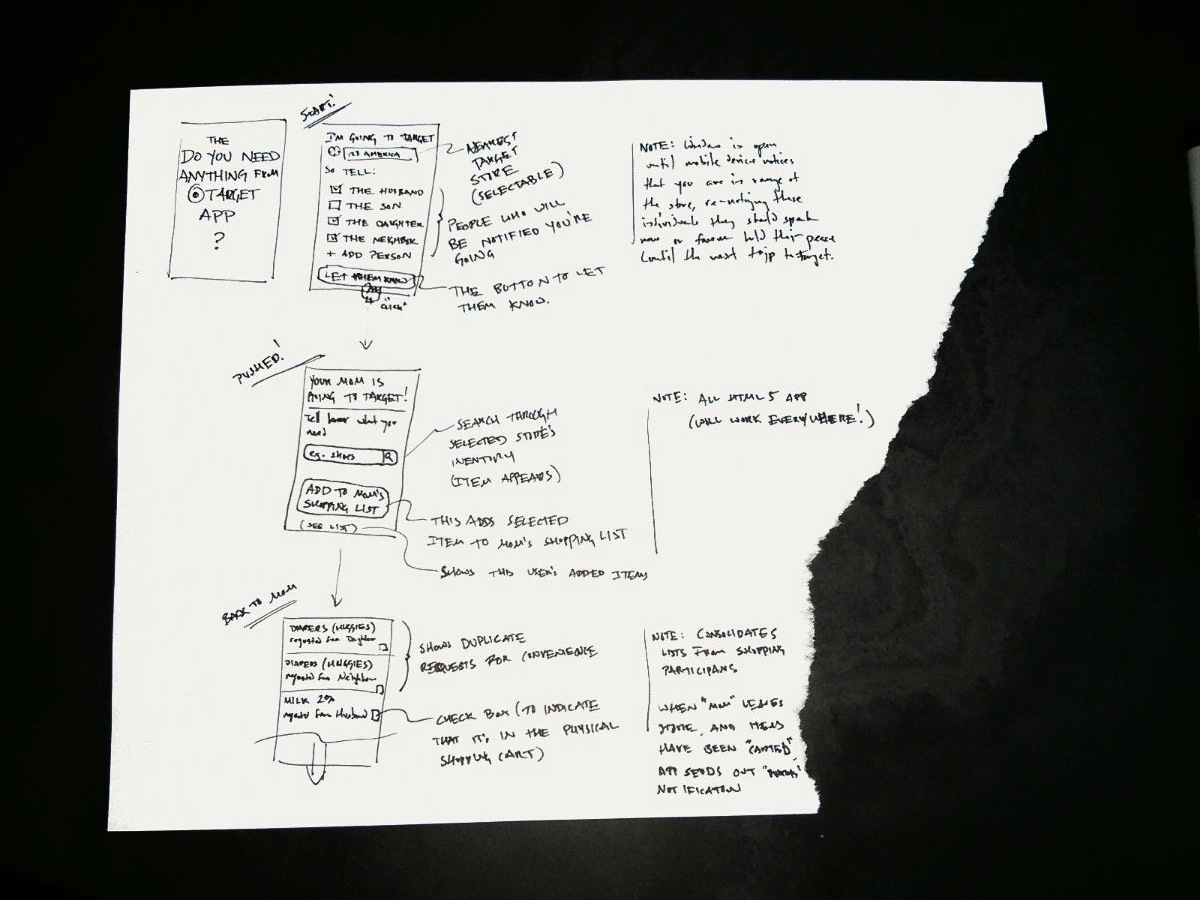 THE
DO YOU NEED
ANYTHING FROM
TARGET
APP
?
START!
I'M GOING TO TARGET
123 AMERICA
SO TELL:
THE HUSBAND
THE SON
THE DAUGHTER
THE NEIGHBOR
+ ADD PERSON
LET THEM KNOW
"CLICK"
NEAREST
TARGET
STORE
(SELECTABLE)
PEOPLE WHO WILL
BE NOTIFIED YOU'RE
GOING
THE BUTTON TO LET
THEM KNOW.
NOTE: Window is open
until mobile device notices
that you are in range of
the store, re-notifying these
individuals they should speak
now or forever hold their peace
(until the next trip to target.
PUSHED!
YOUR MOM IS
GOING TO TARGET!
Tell her what you
need
eg. shoes
ADD TO MOM'S
SHOPPING LIST
(SEE LIST)
SEARCH THROUGH
SELECTED STORE'S
INVENTORY
(ITEM APPEARS)
THIS ADDS SELECTED
ITEM TO MOM'S SHOPPING LIST
SHOWS THIS USER'S ADDED ITEMS
NOTE: ALL HTML5 APP
(WILL WORK EVERYWHERE!)
BACK TO MOM
DIAPERS (HUGGIES)
requested from Daughter
DIAPERS (HUGGIES)
requested from Neighbor
MILK 2%
requested from Husband
SHOWS DUPLICATE
REQUESTS FOR CONVENIENCE
CHECK BOX (TO INDICATE
THAT IT'S IN THE PHYSICAL
SHOPPING CART)
NOTE: CONSOLIDATES
LISTS FROM SHOPPING
PARTICIPANS
WHEN "MOM" LEAVES
STORE, AND ITEMS
HAVE BEEN "CARTED"
APP SENDS OUT
NOTIFICATION